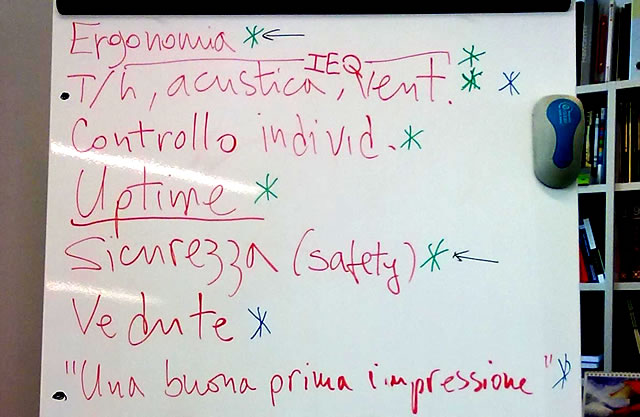 Ergonomia * ←
IEQ *
T/h, acustica, Vent. * *
Controllo individ. *
Uptime *
Sicurezza (safety) * ←
Vedute *
"Una buona prima impressione" *